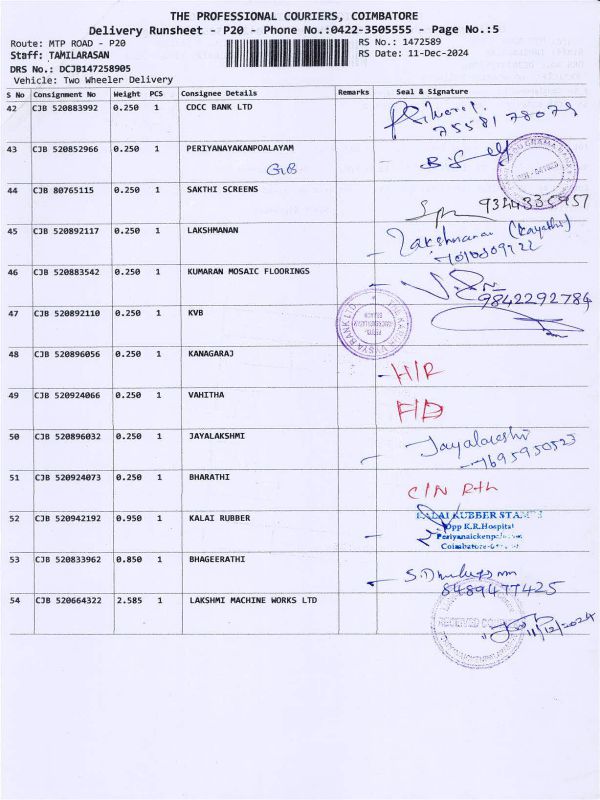 THE PROFESSIONAL COURIERS, COIMBATORE
Delivery Runsheet - P20 - Phone No.:0422-3505555 - Page No.:5
Route: MTP ROAD - P20 RS No.: 1472589
Staff: TAMILARASAN RS Date: 11-Dec-2024
DRS No.: DCJB147258905
Vehicle: Two Wheeler Delivery
S No Consignment No Weight PCS Consignee Details Remarks Seal & Signature
42 CJB 520883992 0.250 1 CDCC BANK LTD
75581 78079
43 CJB 520852966 0.250 1 PERIYANAYAKANPOALAYAM
GB
44 CJB 80765115 0.250 1 SAKTHI SCREENS
9344335957
45 CJB 520892117 0.250 1 LAKSHMANAN Lakshmanan
46 CJB 520883542 0.250 1 KUMARAN MOSAIC FLOORINGS
9842292784
47 CJB 520892110 0.250 1 KVB
48 CJB 520896056 0.250 1 KANAGARAJ H/R
49 CJB 520924066 0.250 1 VAHITHA F/D
50 CJB 520896032 0.250 1 JAYALAKSHMI
7695950523
51 CJB 520924073 0.250 1 BHARATHI C/N Rth
52 CJB 520942192 0.950 1 KALAI RUBBER KALAI RUBBER STAMP
Opp K.R.Hospital
Periyanaickenpalayam
Coimbatore
53 CJB 520833962 0.850 1 BHAGEERATHI
8489477425
54 CJB 520664322 2.585 1 LAKSHMI MACHINE WORKS LTD
RECEIVED
11/12/2024